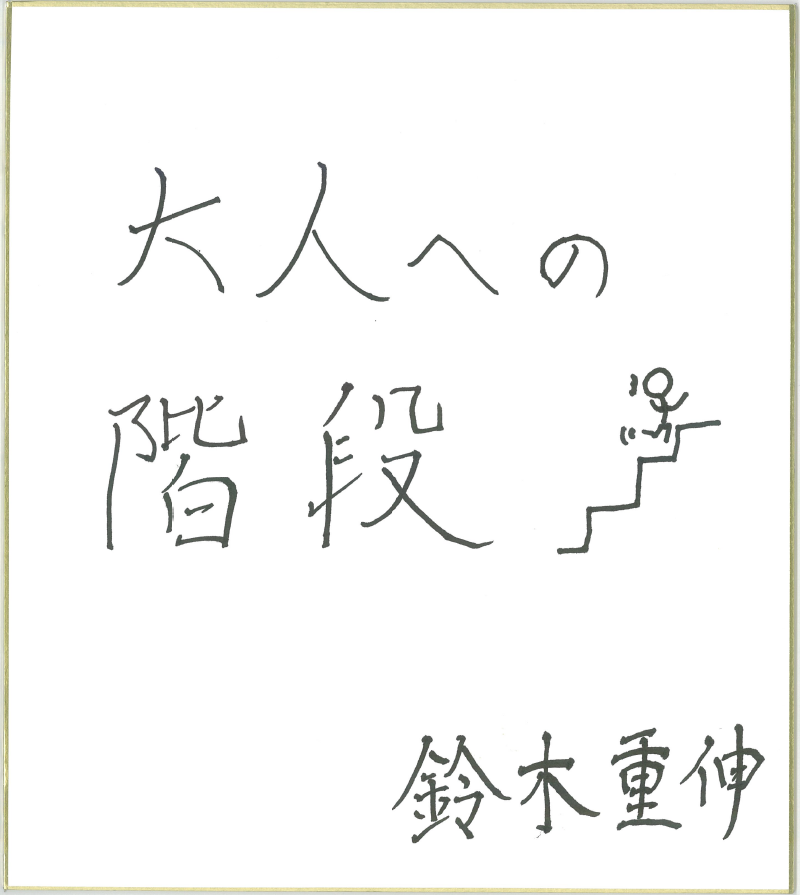 大人への
階段
鈴木重伸